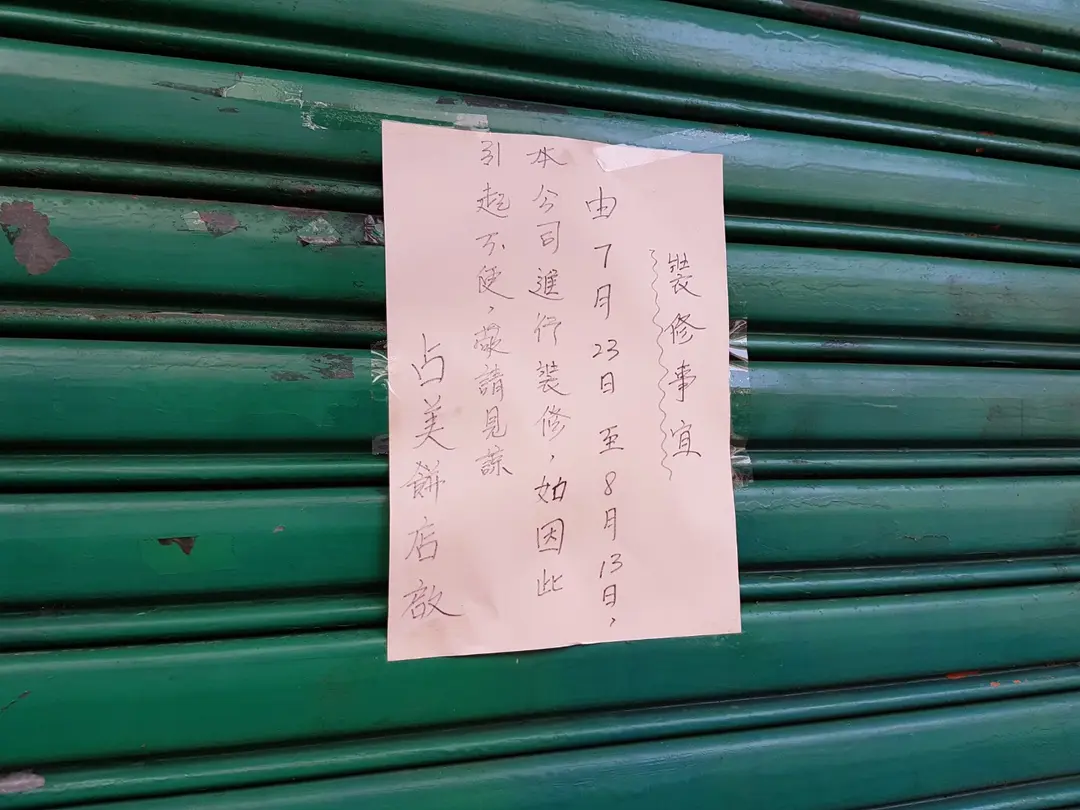 裝修事宜
由7月23日至8月13日，
本公司進行裝修，如因此
引起不便，敬請見諒
占美餅店啟